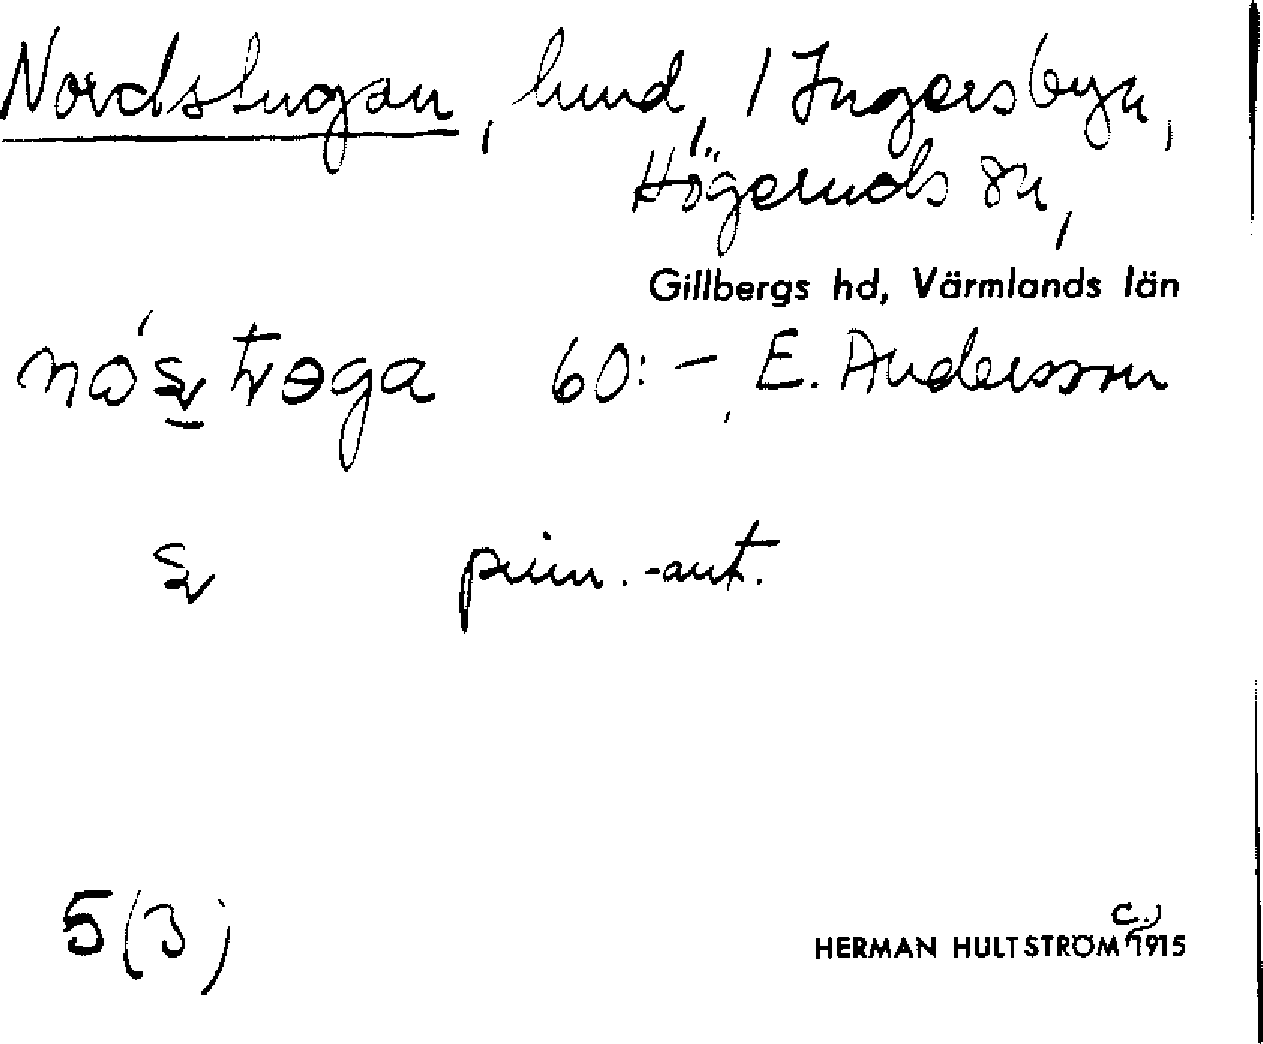 Nordstugan, lund, / Ingersbyn,
Högeruds sn,
Gillbergs hd, Värmlands län
60:- , E. Andersson
prim. -ant.
5 (3)
HERMAN HULTSTRÖM C. 1915